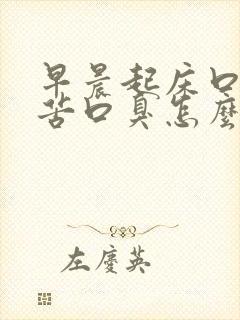 早晨起床口
苦口臭怎麼
左慶英